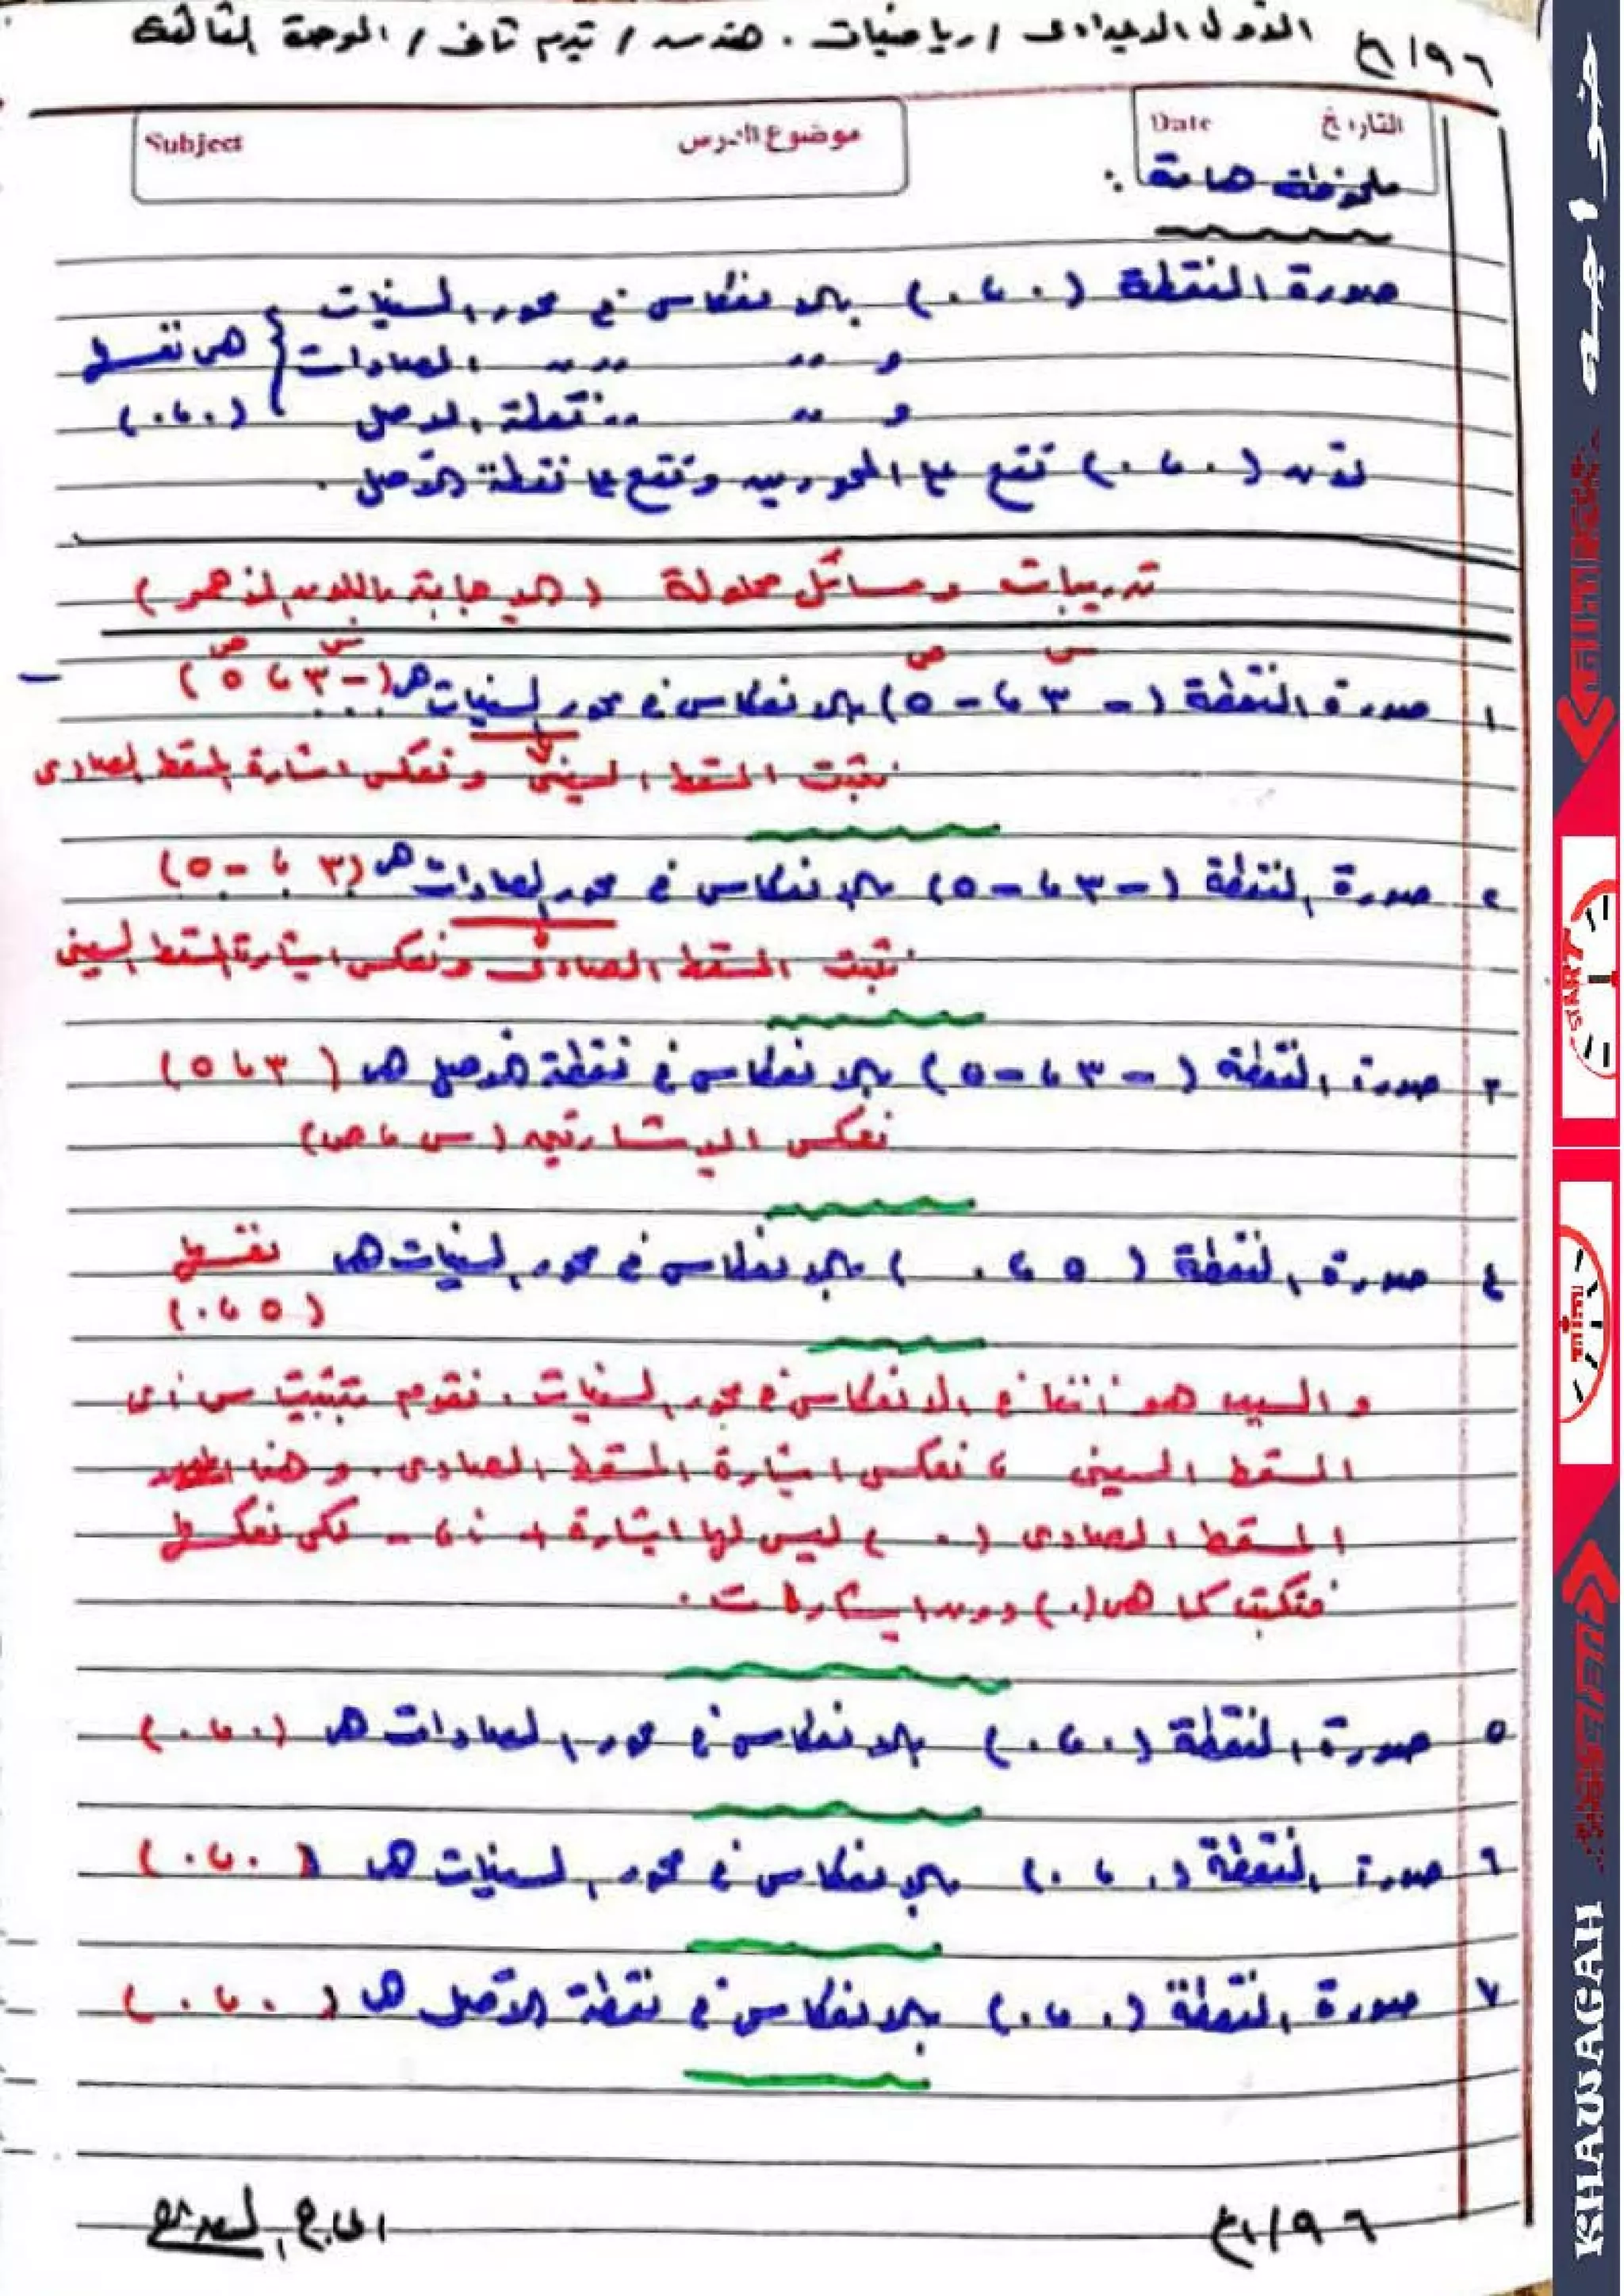 الأول الاعدادى / رياضيات . هندسه / ترم ثانى / الوحدة الثالثة
التاريخ Date
موضوع الدرس Subject
ملحوظة هامة :
صورة النقطة (٠ ، ٠) بالانعكاس فى محور السينات
و ,, ,, ,, الصادات } هى نفسها
و ,, ,, نقطة الاصل (٠ ، ٠)
لأن (٠ ، ٠) تقع على المحورين وتقع على نقطة الأصل .
تدريبات ومسائل محلولة (الاجابة باللون الأحمر)
س ص س ص
١ صورة النقطة (- ٣ ، - ٥) بالانعكاس فى محور السينات هى (- ٣ ، ٥)
نثبت المسقط السينى ونعكس اشارة المسقط الصادى
٢ صورة النقطة (- ٣ ، - ٥) بالانعكاس فى محور الصادات هى (٣ ، - ٥)
نثبت المسقط الصادى ونعكس اشارة المسقط السينى
٣ صورة النقطة (- ٣ ، - ٥) بالانعكاس فى نقطة الأصل هى (٣ ، ٥)
نعكس الاشارتين (س ، ص)
٤ صورة النقطة (٥ ، ٠) بالانعكاس فى محور السينات هى نفسها
(٥ ، ٠)
والسبب هو أننا فى الانعكاس فى محور السينات . نقوم بتثبيت س أى
المسقط السينى ، نعكس اشارة المسقط الصادى . وهنا
المسقط الصادى (٠) ليس لها اشارة + أ، - لكى نعكسها
فتكتب كما هى (٠) دون اشارات .
٥ صورة النقطة (٠ ، ٠) بالانعكاس فى محور الصادات هى (٠ ، ٠)
٦ صورة النقطة (٠ ، ٠) بالانعكاس فى محور السينات هى (٠ ، ٠)
٧ صورة النقطة (٠ ، ٠) بالانعكاس فى نقطة الأصل هى (٠ ، ٠)
خواجه
START
KHAWAGAH